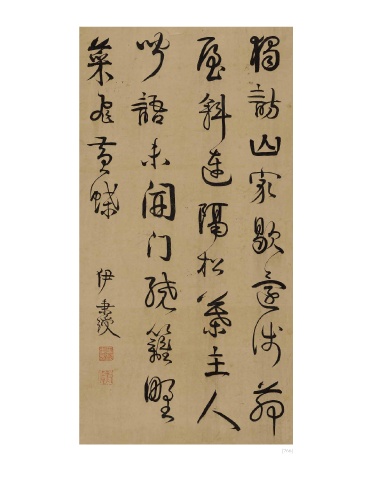 獨訪山家歇還涉茆
屋斜連隔松葉主人
聞語未開門繞籬野
菜飛黃蝶
伊